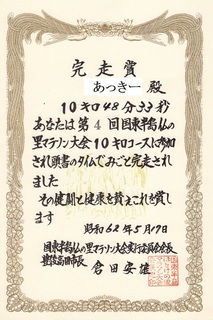 完走賞
あっきー 殿
10キロ48分33秒
あなたは第4回国東半島仏の
里マラソン大会10キロコースに参加
され頭書のタイムでみごと完走され
ました
その健闘と健康を讃えこれを賞し
ます
昭和62年5月17日
国東半島仏の里マラソン大会実行委員会会長
豊後高田市長 倉田安雄